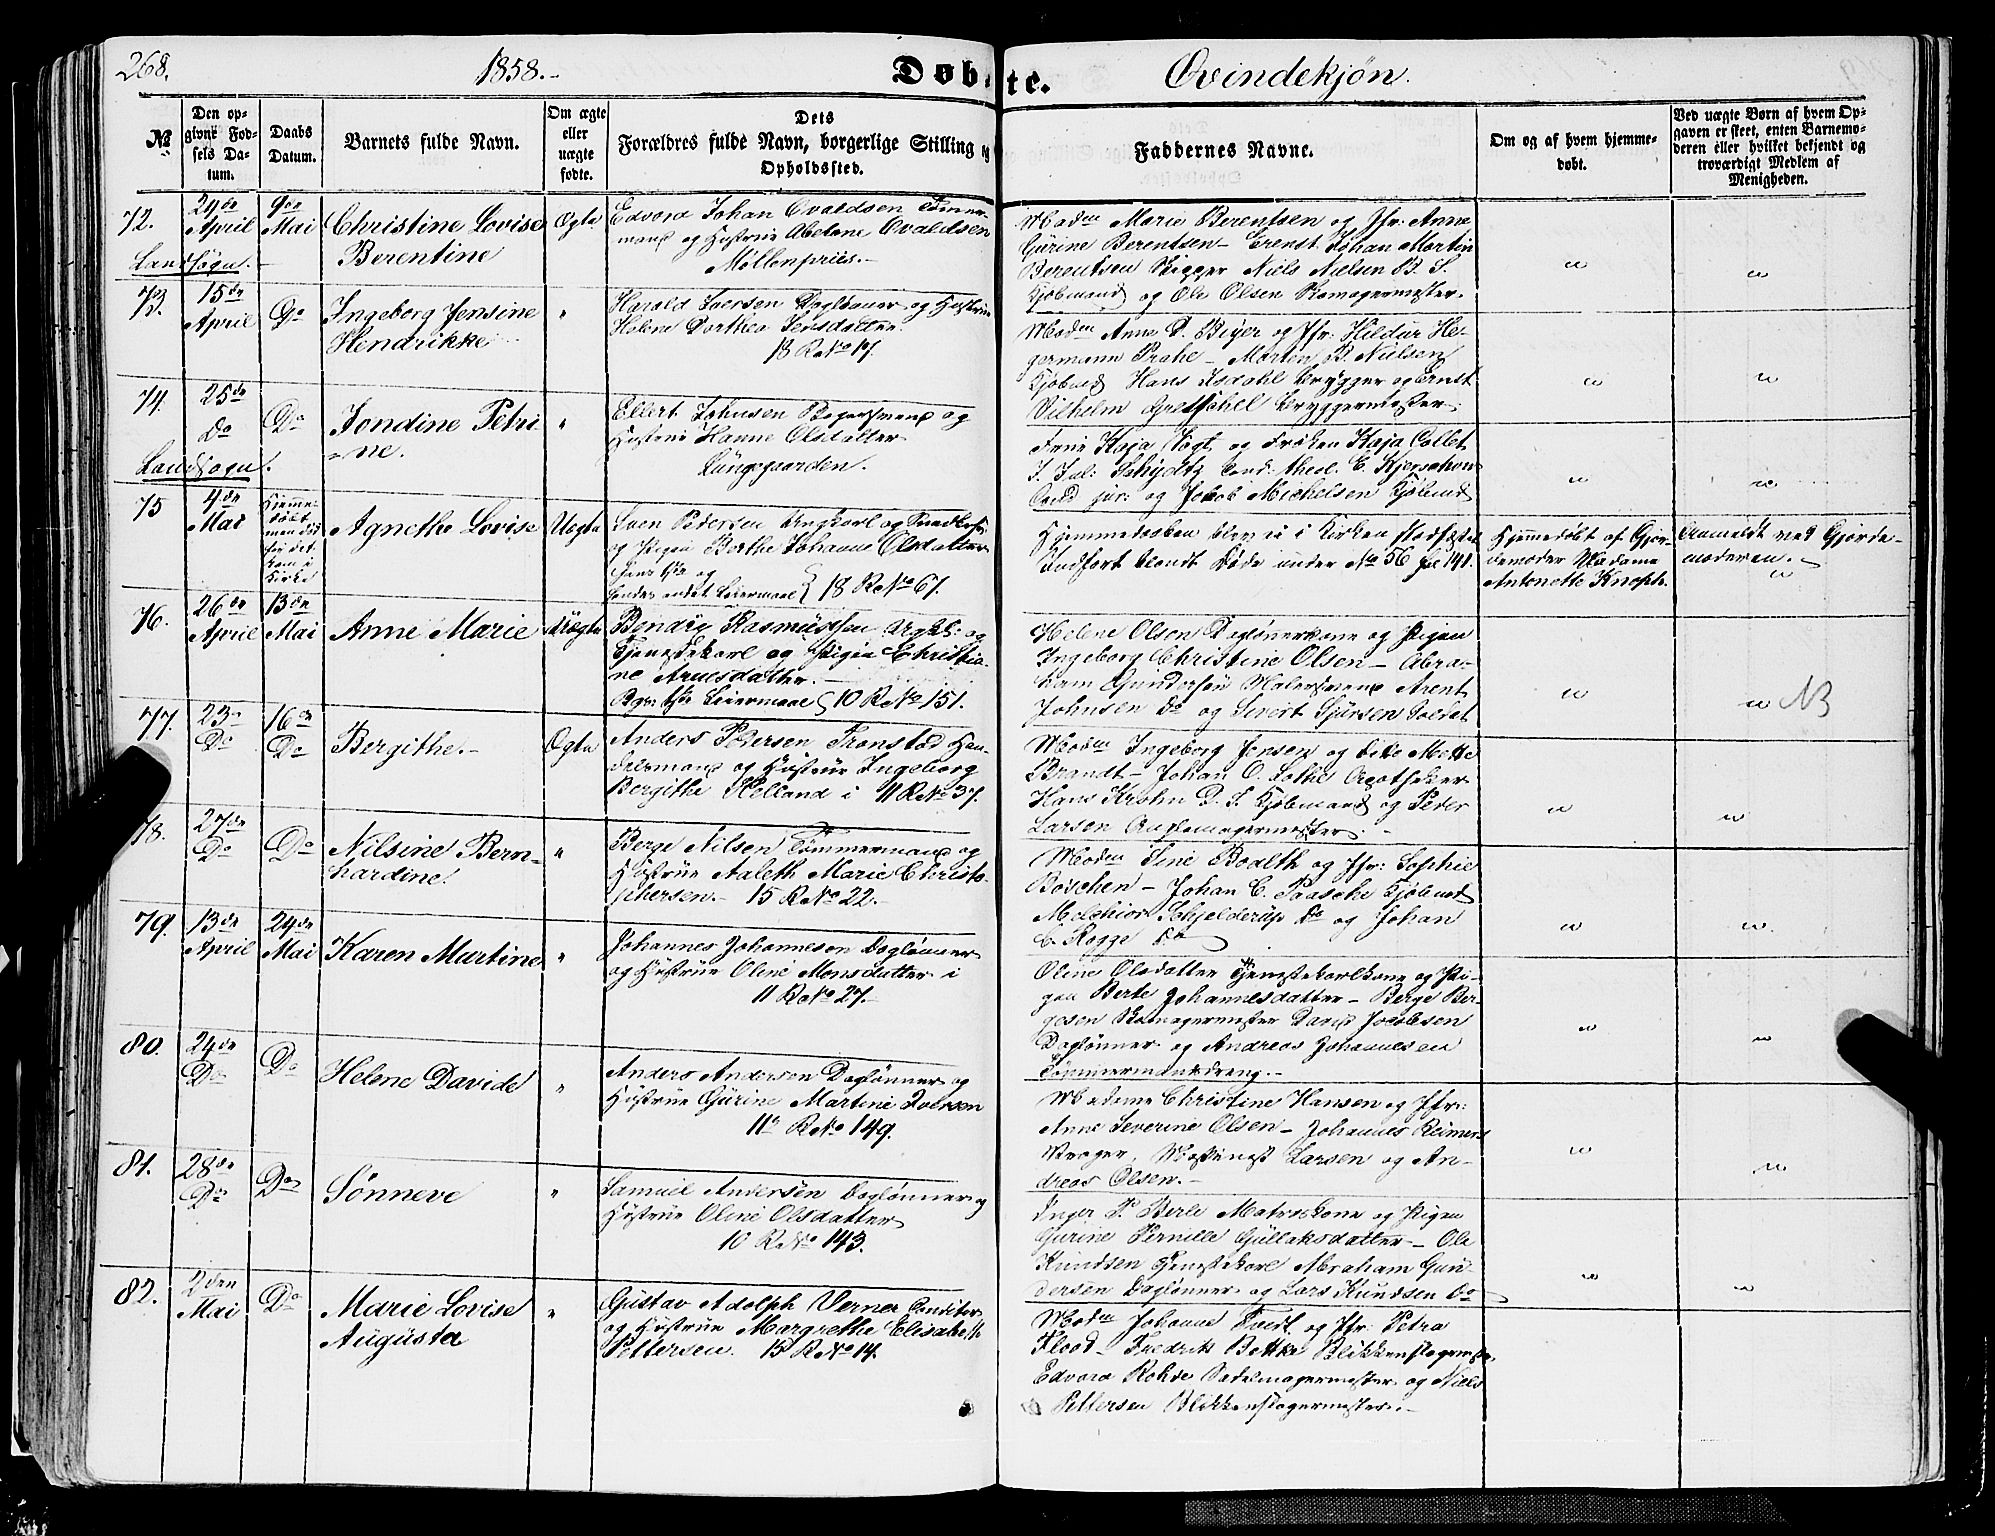 268.
1858.-
Døbte.
Qvindekjøn.
№
Den opgivne Fødsels Datum.
Daabs Datum.
Barnets fulde Navn.
Om ægte eller uægte fødte.
Dets Forældres fulde Navn, borgerlige Stilling og Opholdssted.
Faddernes Navne.
Om og af hvem hjemmedøbt.
Ved uægte Børn af hvem Opgaven er skeet, enten Barnemoderen eller hvilket bekjendt og troværdigt Medlem af Menigheden.
72.
April
9de Mai
Christine Lovise
Berentine
Ægte
Edvard Johan Evaldsen Tømmer-
mand og Hustrue Abelone Evaldsen
Møllenpriis.-
Landsogn.-
Madm Marie Berentsen og Jfr. Anne
Gurine Berentsen - Ernst Johan Martin
Berentsen Skipper Niels Nielsen B. S.
Kjøbmand og Ole Olsen Skomagermester.
73.
15de April
Do
Ingeborg Jensine
Hendrikke
"
Harald Iversen Dagløner og Hustrue
Helene Dorthea Jensdatter
18 R No 17.
Madm Anne D. Beyer og Jfr. Hildur He-
germann Prahl - Morten B. Nielsen
Kjøbmd Hans Isdahl Brygger og Ernst
Vilhelm Gretschel Bryggermester.
74.
25de
Do
Do
Jondine Petri
-ne.
"
Ellert Johnsen Bøgersvend og
Hustrue Hanne Olsdatter
Lungegaarden.
Landsogn.
Frue Kaja Vogt og Frøken Kaja Collet
J. Jul: Schydtz Cand: theol. C. Kjerschow
Cand jur: og Jakob Michelsen Kjøbmd
75
4de Mai
Hjemme-
døbt
men død
før det
kom i
Kirke
Agnethe Lovise
Uægte
Sven Pedersen Ungkarl og
og Pigen Berthe Johanne Olsdatter
18 R No 67.
Hjemmedaaben blev ei i Kirken stadfæstet
Indført blandt Døde under No 56 fol 141.
Hjemmedøbt af Gjor-
demoder Madame
Antonette Knoph.
Anmeldt ved Gjorde-
moderen.-
76.
26de April
13de Mai
Anne Marie
Uægte
Bendix Rasmussen Ungk: og
Tjenestekarl og Pigen Christia-
ne Arnesdatter.-
Bges 1ste Leiermaal 10 R No 151.
Helene Olsen Daglønerkone og Pigen
Ingeborg Christine Olsen - Abra-
ham Gundersen Malersvend Arent
Johnsen Do og Sivert Sjursen Soldat
NB
77.
23de
Do
16de
Do
Bergithe.-
Ægte
Anders Pedersen Tronstad Han-
delsmand og Hustrue Ingeborg
Bergithe Helland i 11 R No 37.
Madm Ingeborg Jensen og dito Mette
Brandt - Johan C. Lothe Apotheker
Hans Krohn D. S. Kjøbmand og Peder
Larsen Anglemagermester.-
78.
27de
Do
Do
Nilsine Bern-
hardine.
"
Berge Nilsen Tømmermand og
Hustrue Aaleth Marie Christo-
phersen.- 15 R No 22.-
Madm Sine Boalth og Jfr: Sophie
Bøschen - Johan C. Paasche Kjøbmd
Melchior Schjelderup Do og Johan
C. Rogge Do
79.
13de April
24de Mai
Karen Martine
"
Johannes Johannesen Dagløner
og Hustrue Oline Monsdatter i
11 R No 27.-
Oline Olsdatter Tjenestekarlkone og Pi-
gen Berte Johannesdatter - Berge Ber-
gesen Skomagermester David Jacobsen
Dagløner og Andreas Johannesen
Tømmermandsdreng.-
80.
24de
Do
Do
Helene Davide
"
Anders Andersen Dagløner og
Hustrue Gurine Martine Iversen
11 R No 149.
Madame Christine Hansen og Jfr:
Anne Severine Olsen - Johannes Reimers
Larsen og An-
dreas Olsen.-
81.
28de
Do
Do
Sønneve
"
Samuel Andersen Dagløner og
Hustrue Oline Olsdatter
10 R No 143.
Inger P. Berle Matroskone og Pigen
Gurine Pernille Gullaksdatter - Ole
Knudsen Tjenestekarl Abraham Gun-
dersen Dagløner og Lars Knudsen Do
82.
2den Mai
Do
Marie Lovise
Augusta
"
Gustav Adolph Verner Conditor
og Hustrue Margrethe Elisabeth
Pettersen. 15 R No 14.
Madm Johanne og Jfr: Petra
Flood - Fredrik Bottke Blikkenslagermester,
Edvard Rohde Sadelmagermester og Niels
Pettersen Blikkenslagermester.-